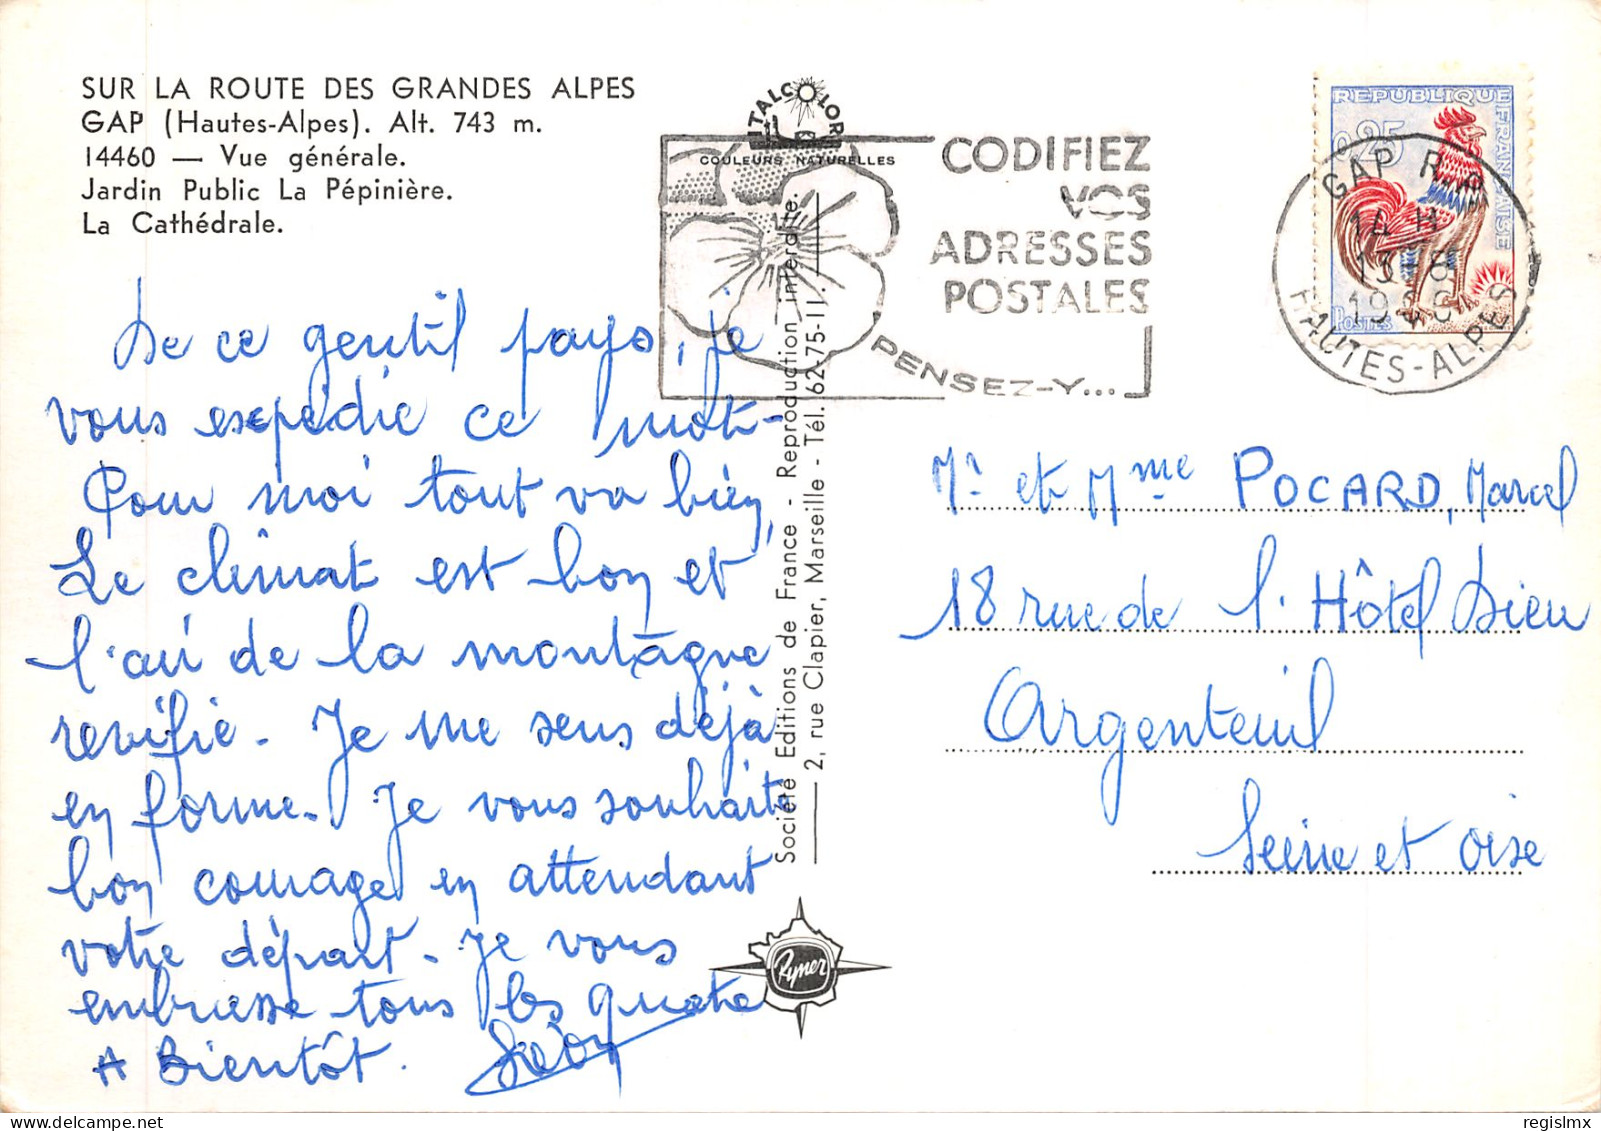 SUR LA ROUTE DES GRANDES ALPES
GAP (Hautes-Alpes). Alt. 743 m.
14460 — Vue générale.
Jardin Public La Pépinière.
La Cathédrale.
De ce gentil pays, je
vous expédie ce mot-
Pour moi tout va bien,
Le climat est bon et
l'air de la montagne
revifie. Je me sens déjà
en forme. Je vous souhaite
bon courage en attendant
votre départ. Je vous
embrasse tous les quatre
A Bientôt. Léon
ITALCOLOR
COULEURS NATURELLES
Société Editions de France - Reproduction interdite
2, rue Clapier, Marseille - Tél. 62-75-11.
Rymer
CODIFIEZ
VOS
ADRESSES
POSTALES
PENSEZ-Y...
REPUBLIQUE FRANÇAISE
0,25
POSTES
GAP R.P.
14 H
HAUTES-ALPES
Mr et Mme POCARD, Marcel
18 rue de l'Hôtel Dieu
Argenteuil
Seine et Oise
regislmx